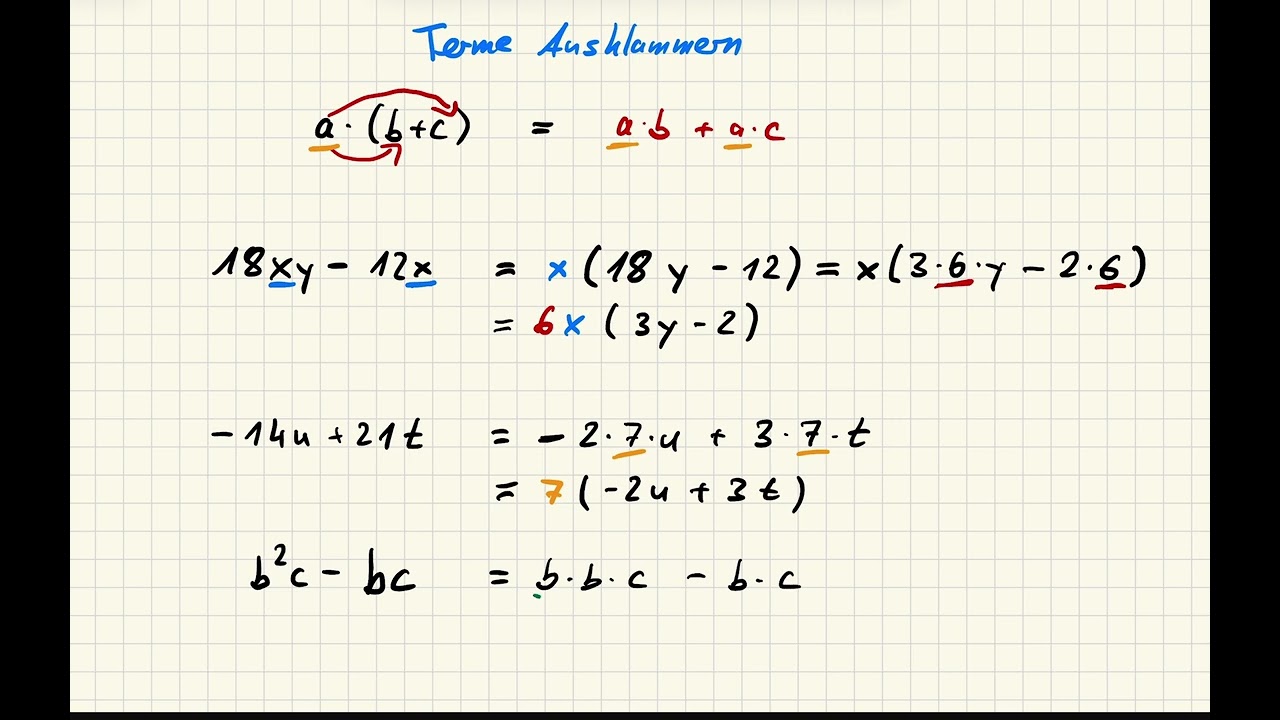 Terme Ausklammern
a · (b+c) = a·b + a·c
18xy - 12x = x (18 y - 12) = x (3·6·y - 2·6)
= 6x (3y - 2)
-14u + 21t = - 2·7·u + 3·7·t
= 7 (-2u + 3t)
b²c - bc = b·b·c - b·c